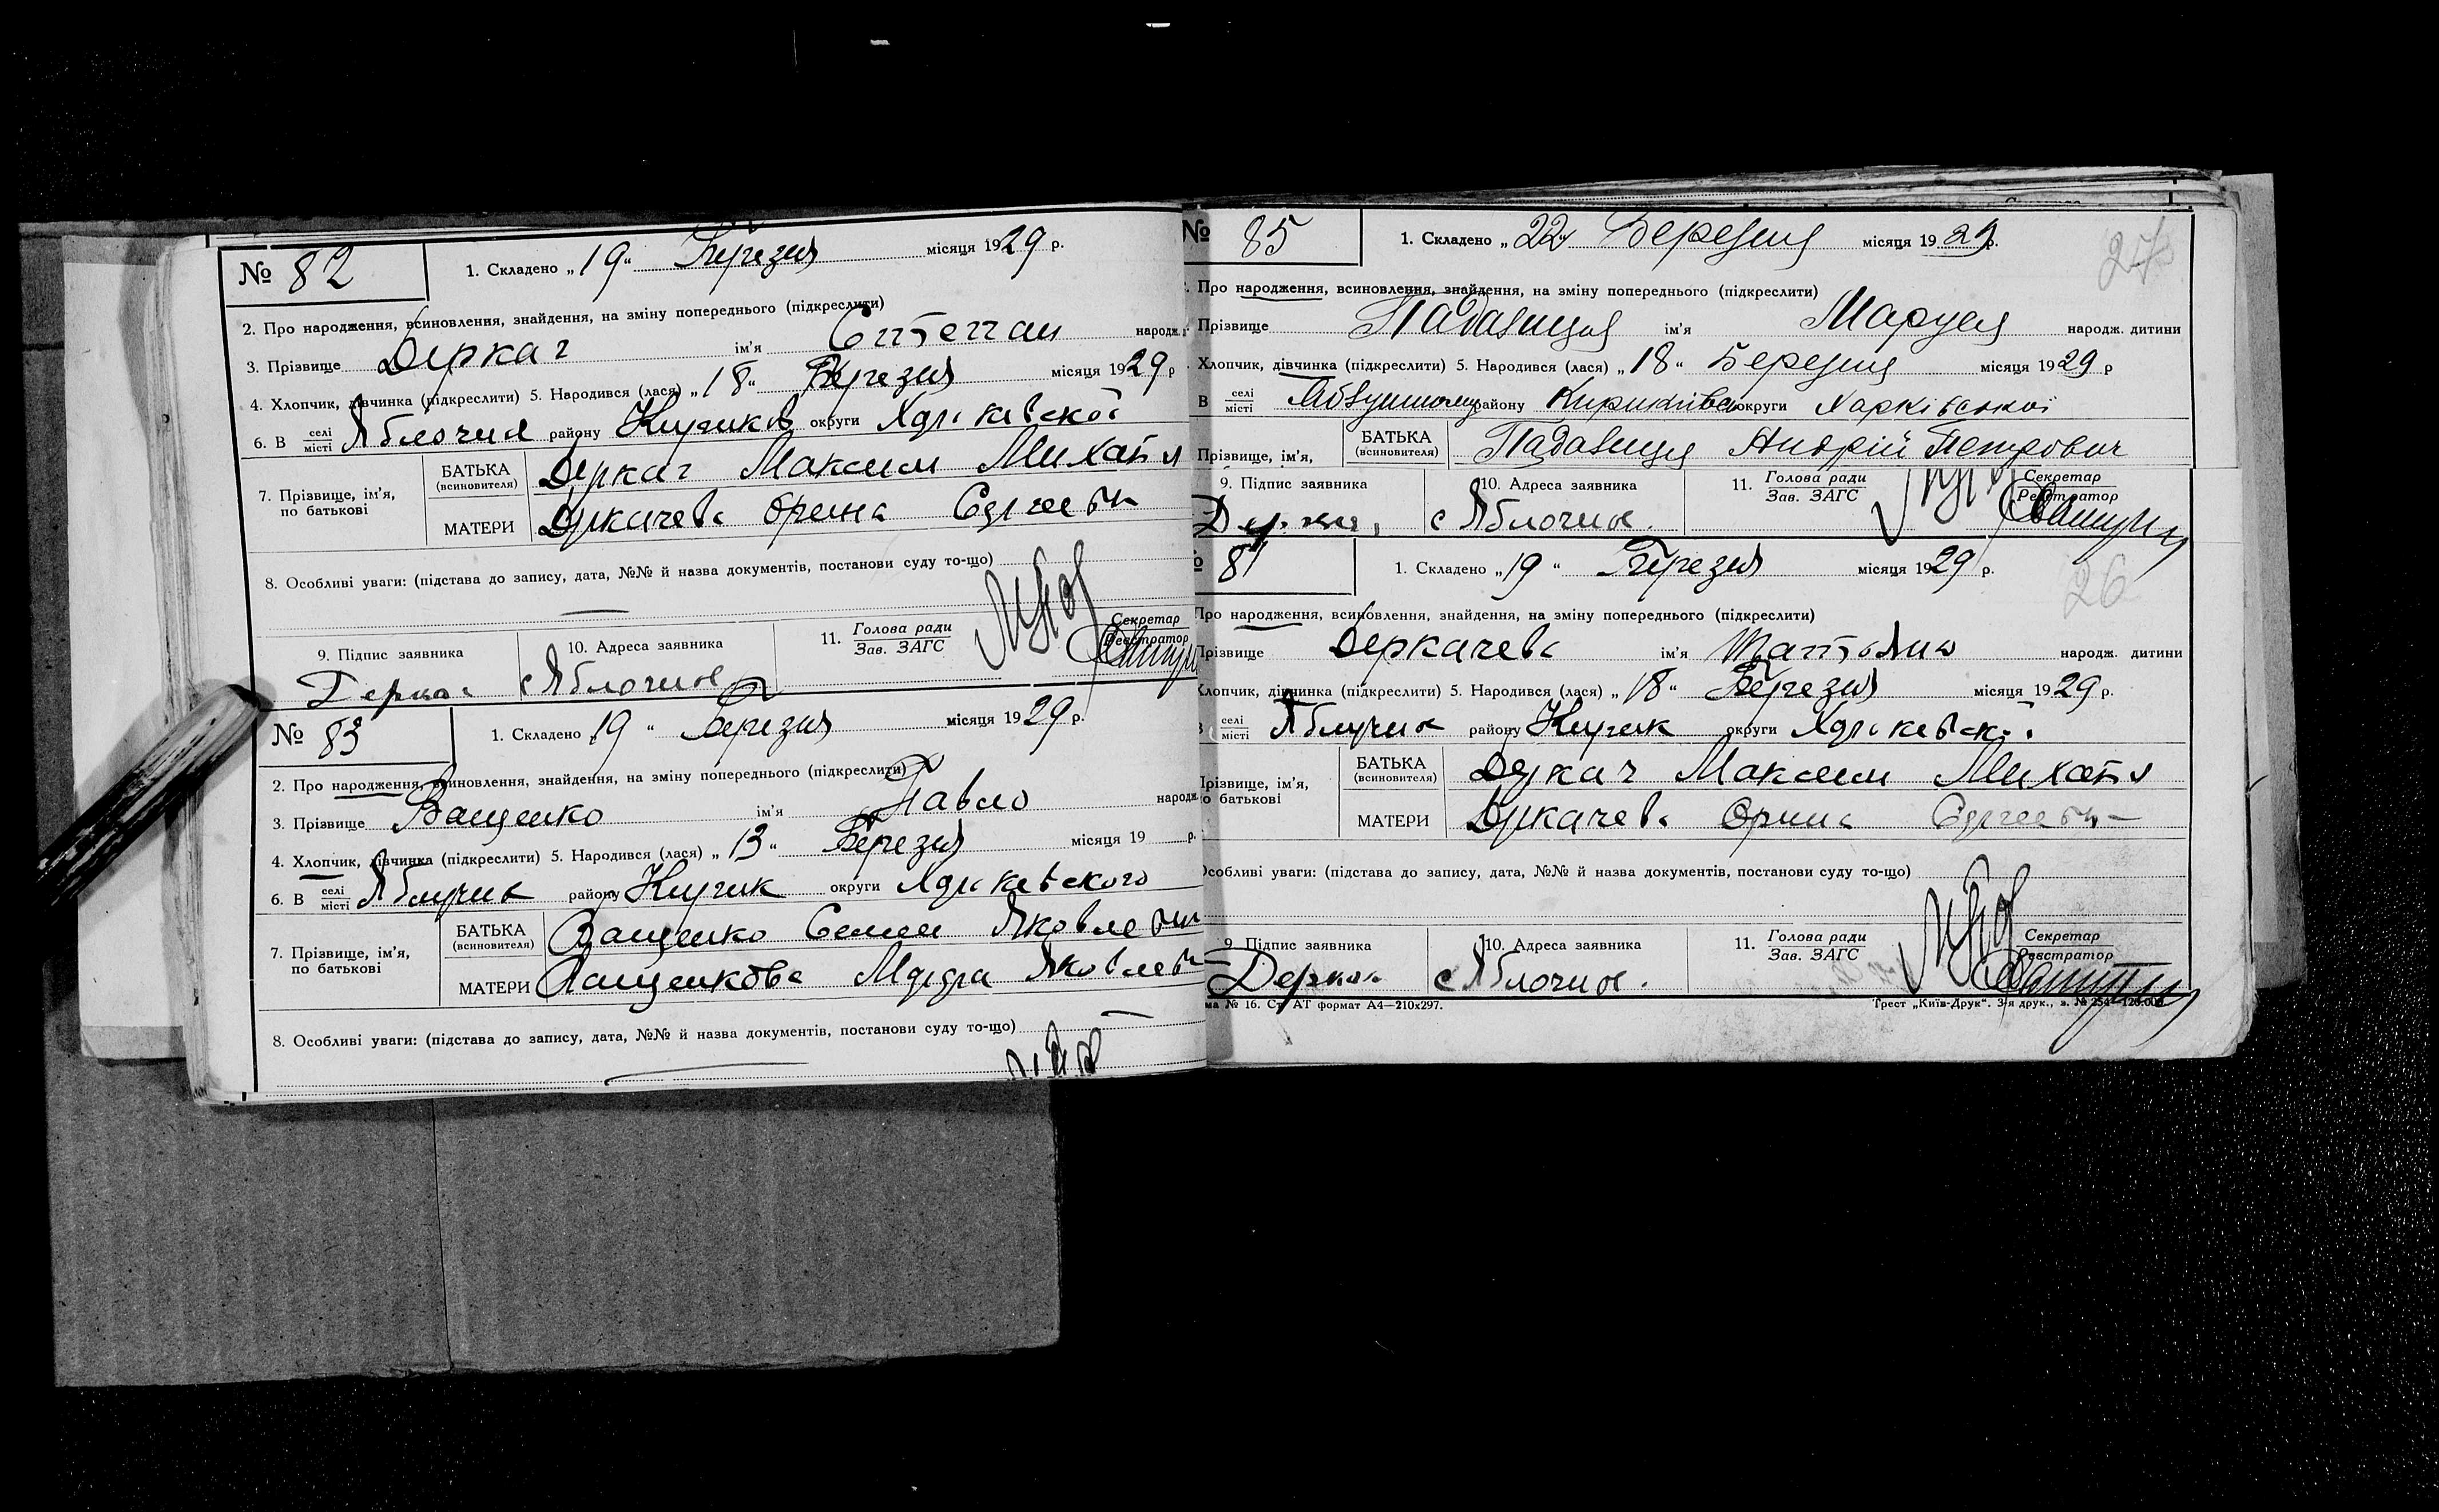 № 82
1. Складено „19“ Березня місяця 1929 р.
2. Про народження, всиновлення, знайдення, на зміну попереднього (підкреслити)
3. Прізвище Деркач ім'я Степан народж.
4. Хлопчик, дівчинка (підкреслити) 5. Народився (лася) „18“ Березня місяця 1929 р
6. В селі місті Яблочня району округи Харківської
7. Прізвище, ім'я, по батькові
БАТЬКА (всиновителя) Деркач Максим
МАТЕРИ Деркачева Орина
8. Особливі уваги: (підстава до запису, дата, №№ й назва документів, постанови суду то-що)
9. Підпис заявника Деркач
10. Адреса заявника с Яблочне
11. Голова ради Зав. ЗАГС
Секретар Реєстратор
№ 83
1. Складено „19“ Березня місяця 1929 р.
2. Про народження, всиновлення, знайдення, на зміну попереднього (підкреслити)
3. Прізвище Ващенко ім'я Павло народж.
4. Хлопчик, дівчинка (підкреслити) 5. Народився (лася) „13“ Березня місяця 19 р.
6. В селі місті району округи Харківського
7. Прізвище, ім'я, по батькові
БАТЬКА (всиновителя) Ващенко Семен Яковлевич
МАТЕРИ Ващенкова Яковлев
8. Особливі уваги: (підстава до запису, дата, №№ й назва документів, постанови суду то-що)
№ 85
1. Складено „22“ Березня місяця 1929 р.
27
Про народження, всиновлення, знайдення, на зміну попереднього (підкреслити)
Прізвище ім'я Маруся народж. дитини
Хлопчик, дівчинка (підкреслити) 5. Народився (лася) „18“ Березня місяця 1929 р
В селі місті району округи Харківської
Прізвище, ім'я,
БАТЬКА (всиновителя) Андрій Петрович
9. Підпис заявника
10. Адреса заявника с Яблочне.
11. Голова ради Зав. ЗАГС
Секретар Реєстратор
81
1. Складено „19“ Березня місяця 1929 р.
26
Про народження, всиновлення, знайдення, на зміну попереднього (підкреслити)
Прізвище Деркачева ім'я народж. дитини
Хлопчик, дівчинка (підкреслити) 5. Народився (лася) „18“ Березня місяця 1929 р.
В селі місті району округи
Прізвище, ім'я, по батькові
БАТЬКА (всиновителя) Деркач Максим
МАТЕРИ Деркачева Орина
Особливі уваги: (підстава до запису, дата, №№ й назва документів, постанови суду то-що)
9. Підпис заявника Деркач
10. Адреса заявника с Яблочне.
11. Голова ради Зав. ЗАГС
Секретар Реєстратор
№ 16. Ст. АТ формат А4—210х297.
Трест „Київ-Друк“. 3-я друк., з. №